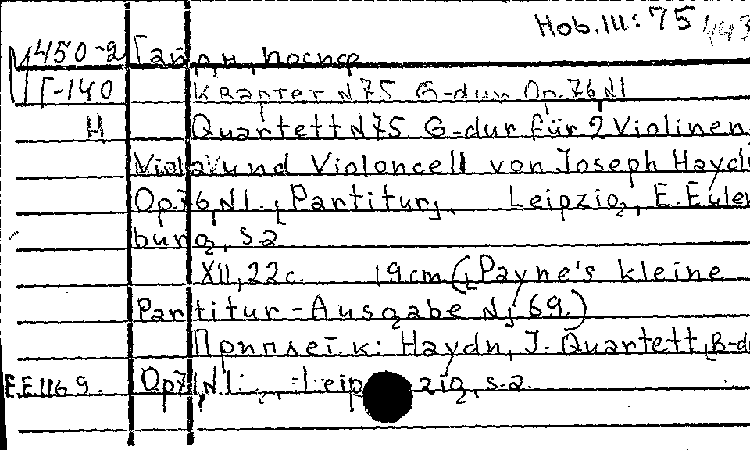 Hob. III: 75
450-2 Гайдн, Иосиф
Г-140 Квартет N75 G-dur Op. 76 N1
H Quartett N75 G-dur für 2 Violinen,
Viola und Violoncell von Joseph Haydn
Op. 76, N1. Partitur. Leipzig, E. Eulen
burg, s.a
XII, 22 с. 19cm (Payne's kleine
Partitur-Ausgabe N 69.)
Приплет. к: Haydn, J. Quartett B-du
E.E.1169. Op 71, N1. - Leipzig, s.a